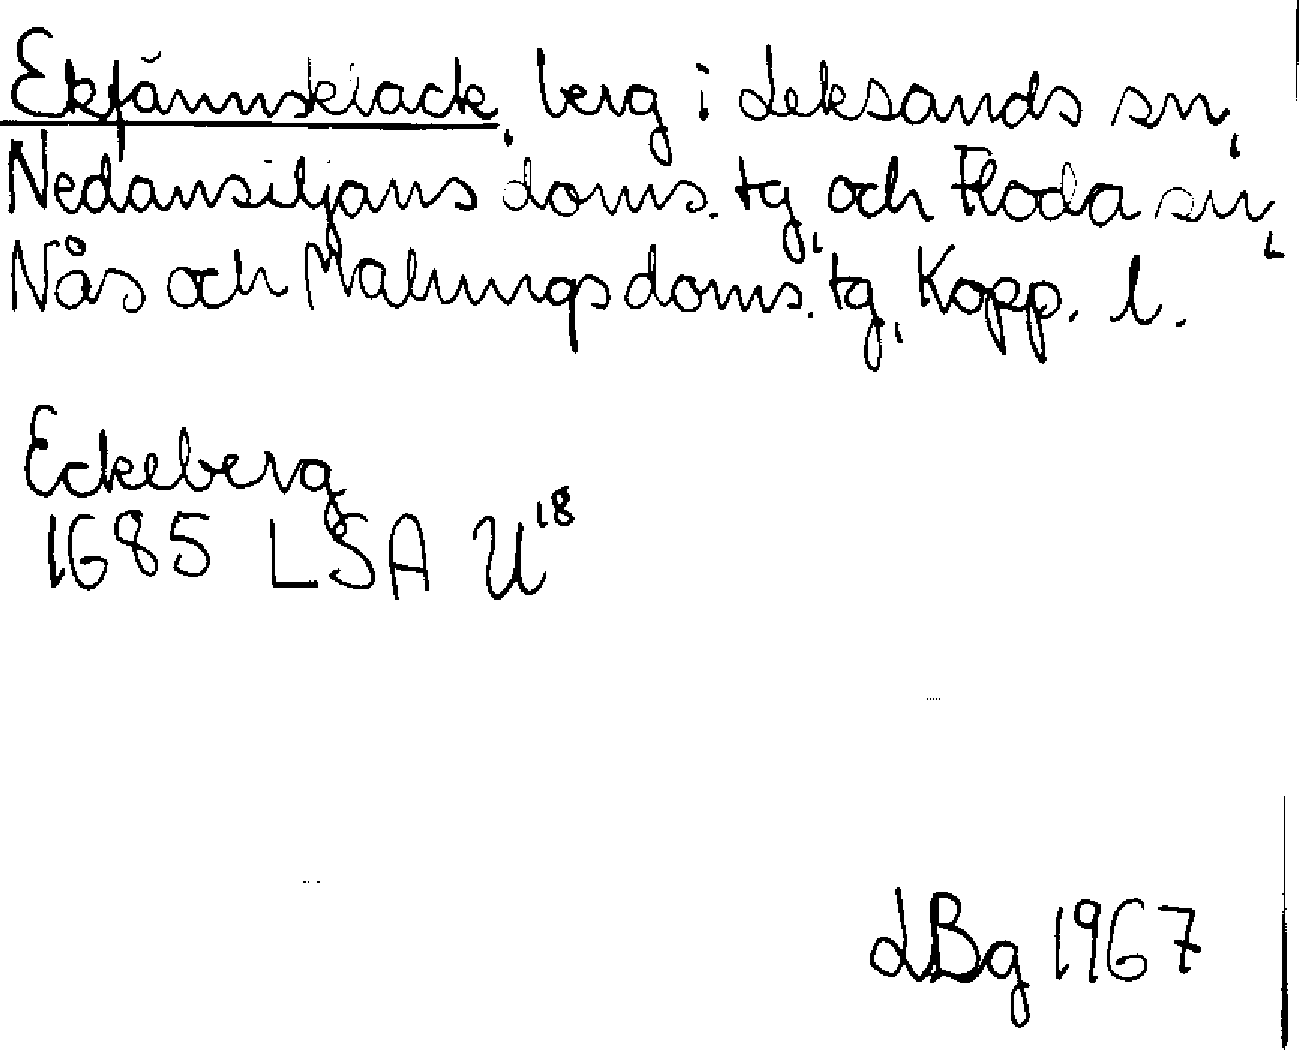 Ekfännsklack, berg i Leksands sn,
Nedansiljans doms. tg, och Floda sn,
Nås och Malungs doms. tg, Kopp. l.
Eckeberg
1685 LSA U18
LBg 1967